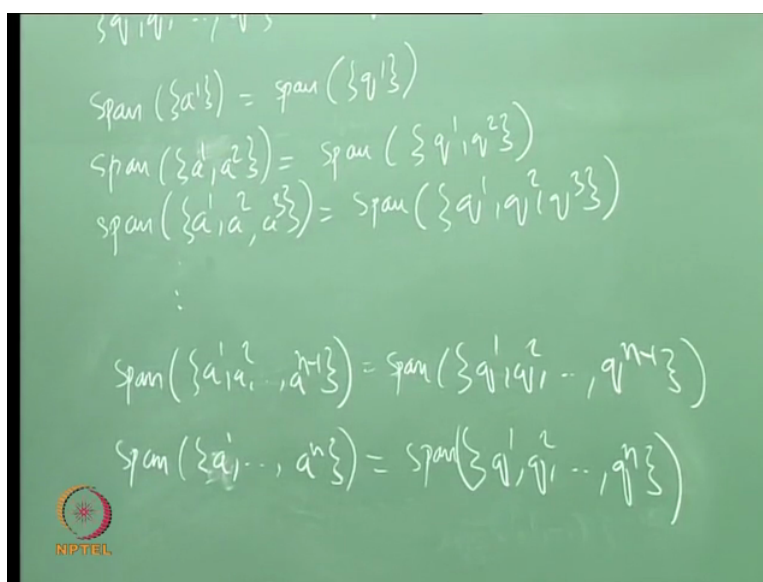 {q¹, q², .., q
span ({a¹}) = span ({q¹})
span ({a¹, a²}) = span ({q¹, q²})
span ({a¹, a², a³}) = span ({q¹, q², q³})
:
span ({a¹, a², .., aⁿ⁻¹}) = span ({q¹, q², .., qⁿ⁻¹})
span ({a¹, .., aⁿ}) = span ({q¹, q², .., qⁿ})
NPTEL